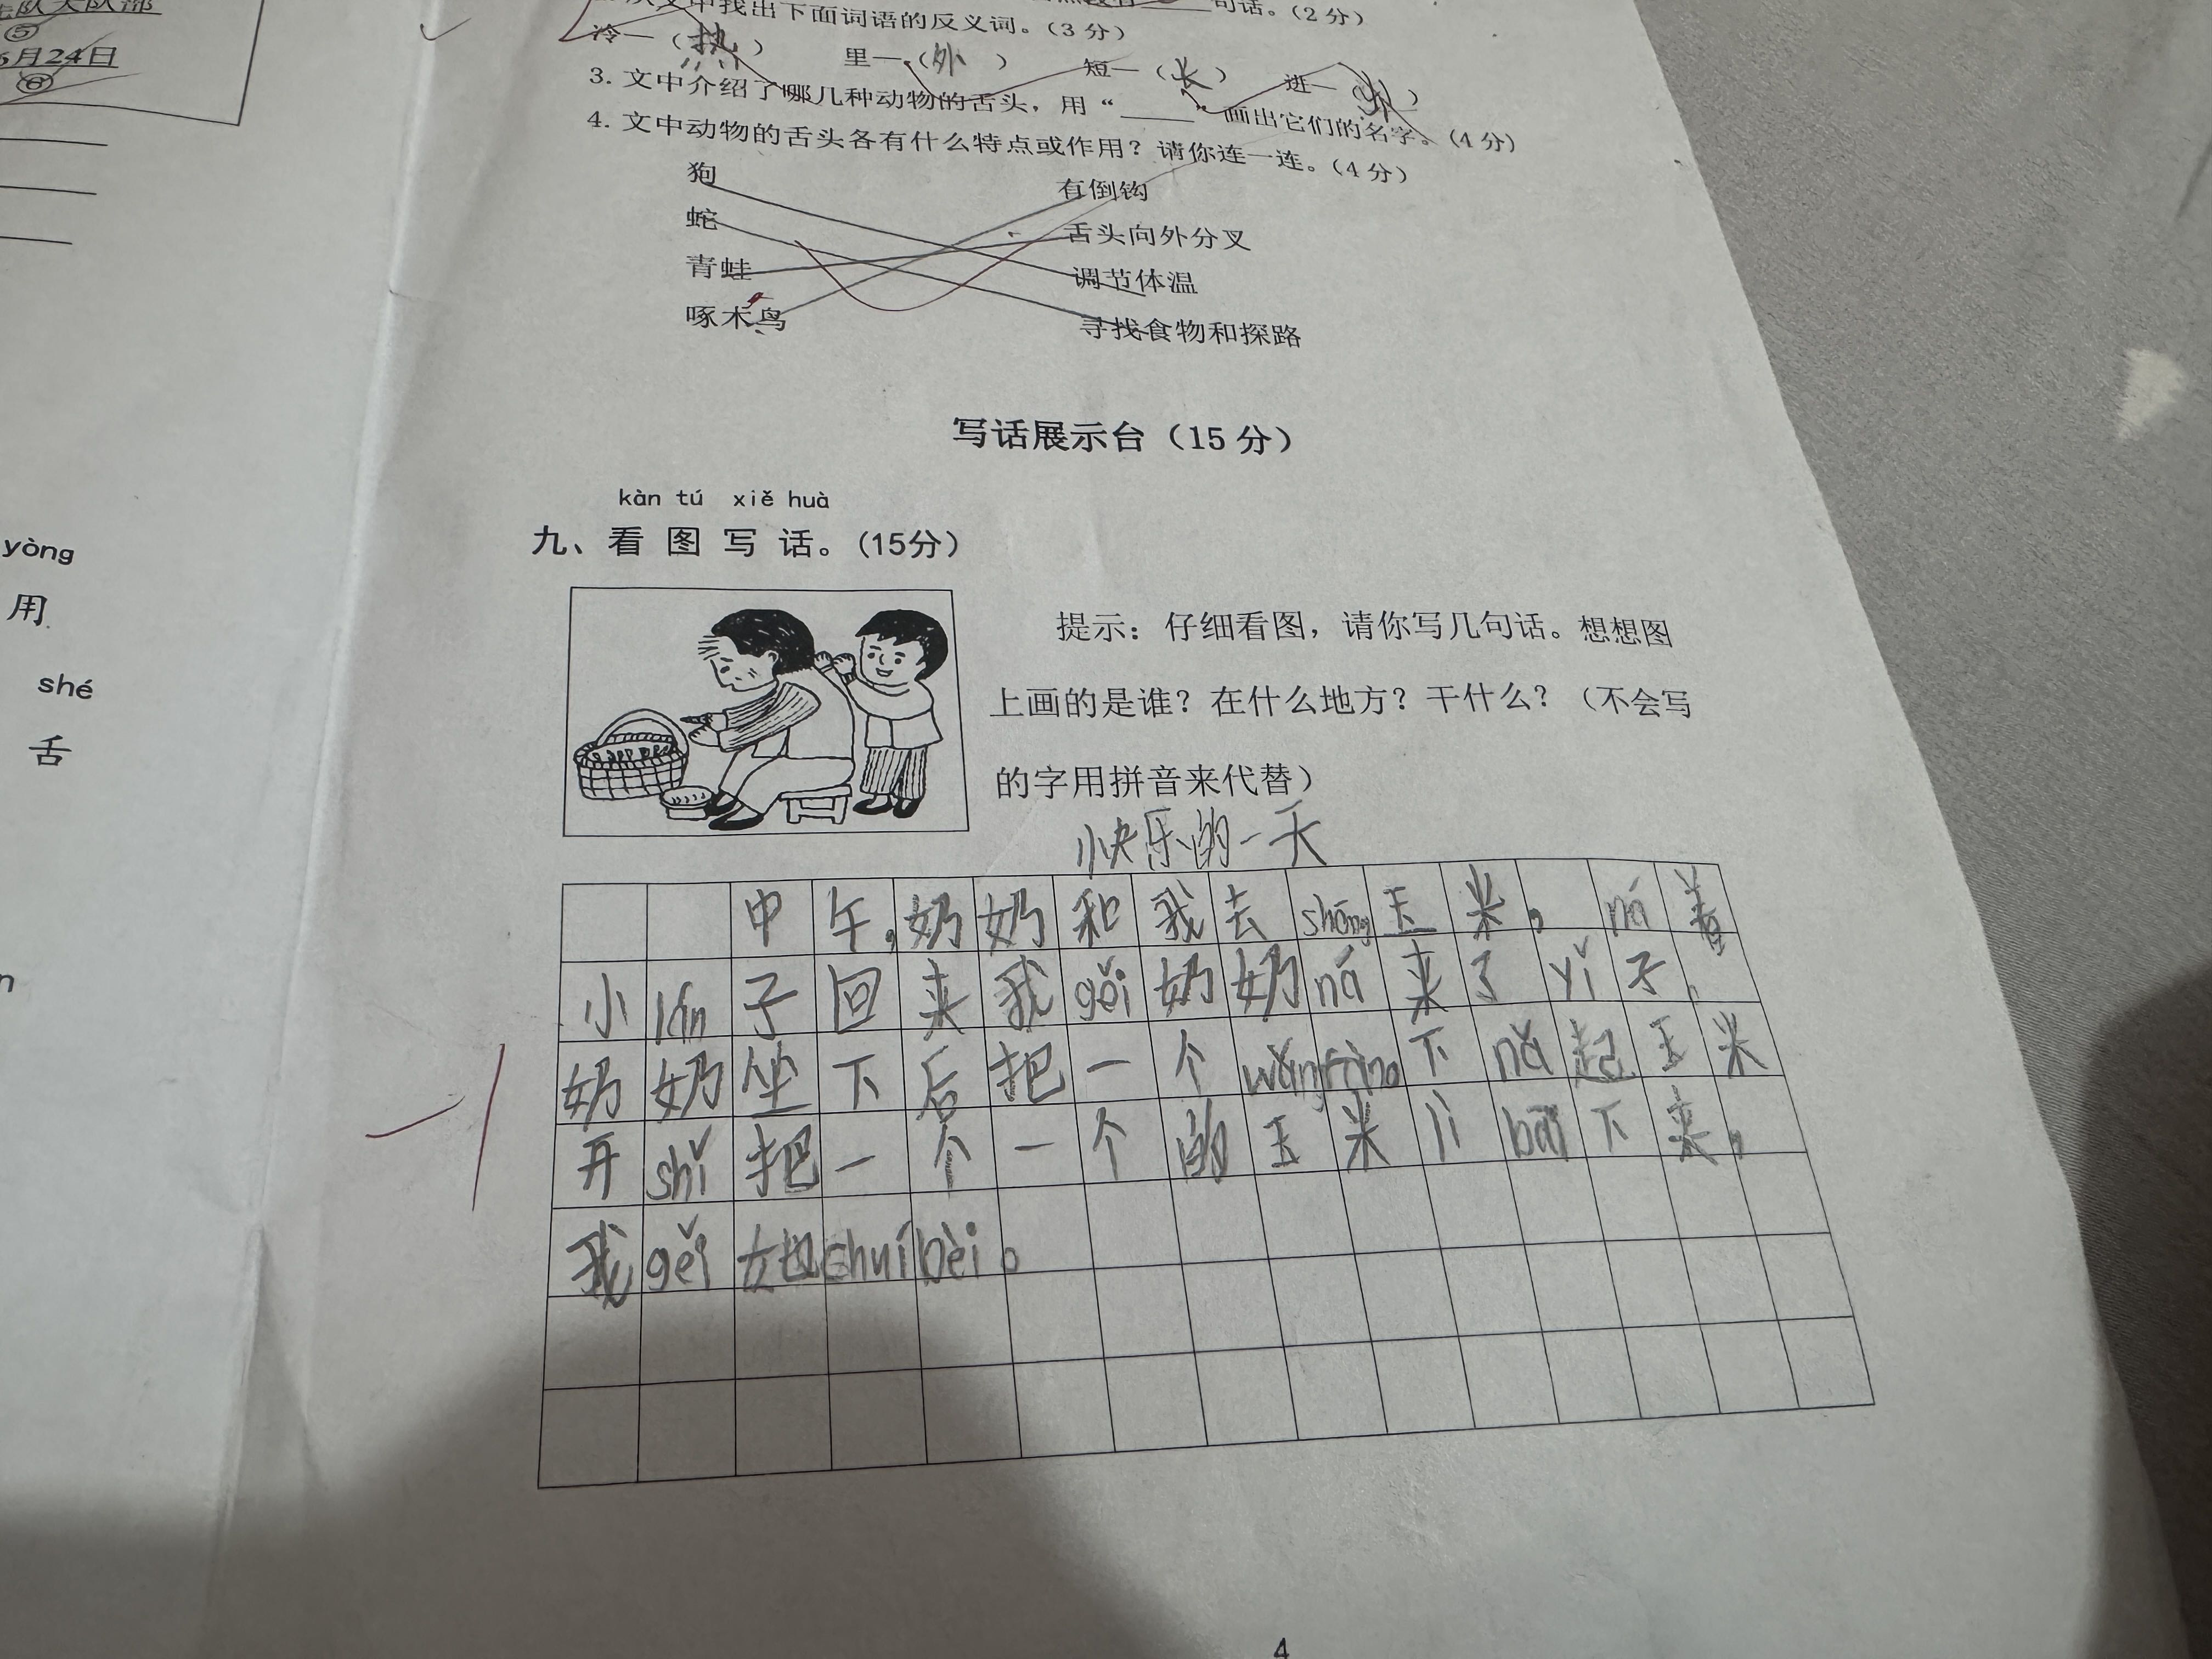 先队大队部
⑤
6月24日
⑥
yòng
用
shé
舌
n
句话。(2分)
从文中找出下面词语的反义词。(3分)
冷一(热) 里一(外) 短一(长) 进一( )
3. 文中介绍了哪几种动物的舌头，用“____”画出它们的名字。(4分)
4. 文中动物的舌头各有什么特点或作用？请你连一连。(4分)
狗 有倒钩
蛇 舌头向外分叉
青蛙 调节体温
啄木鸟 寻找食物和探路
写话展示台（15分）
kàn tú xiě huà
九、看图写话。(15分)
提示：仔细看图，请你写几句话。想想图
上画的是谁？在什么地方？干什么？（不会写
的字用拼音来代替）
快乐的一天
中午,奶奶和我去shōng玉米, ná着
小lán子回来我gěi奶奶ná来了yǐ子,
奶奶坐下后把一个 下 起玉米
开shǐ把一个一个的玉米lì bāi下来,
我gěi她chuíbèi。
-1
4